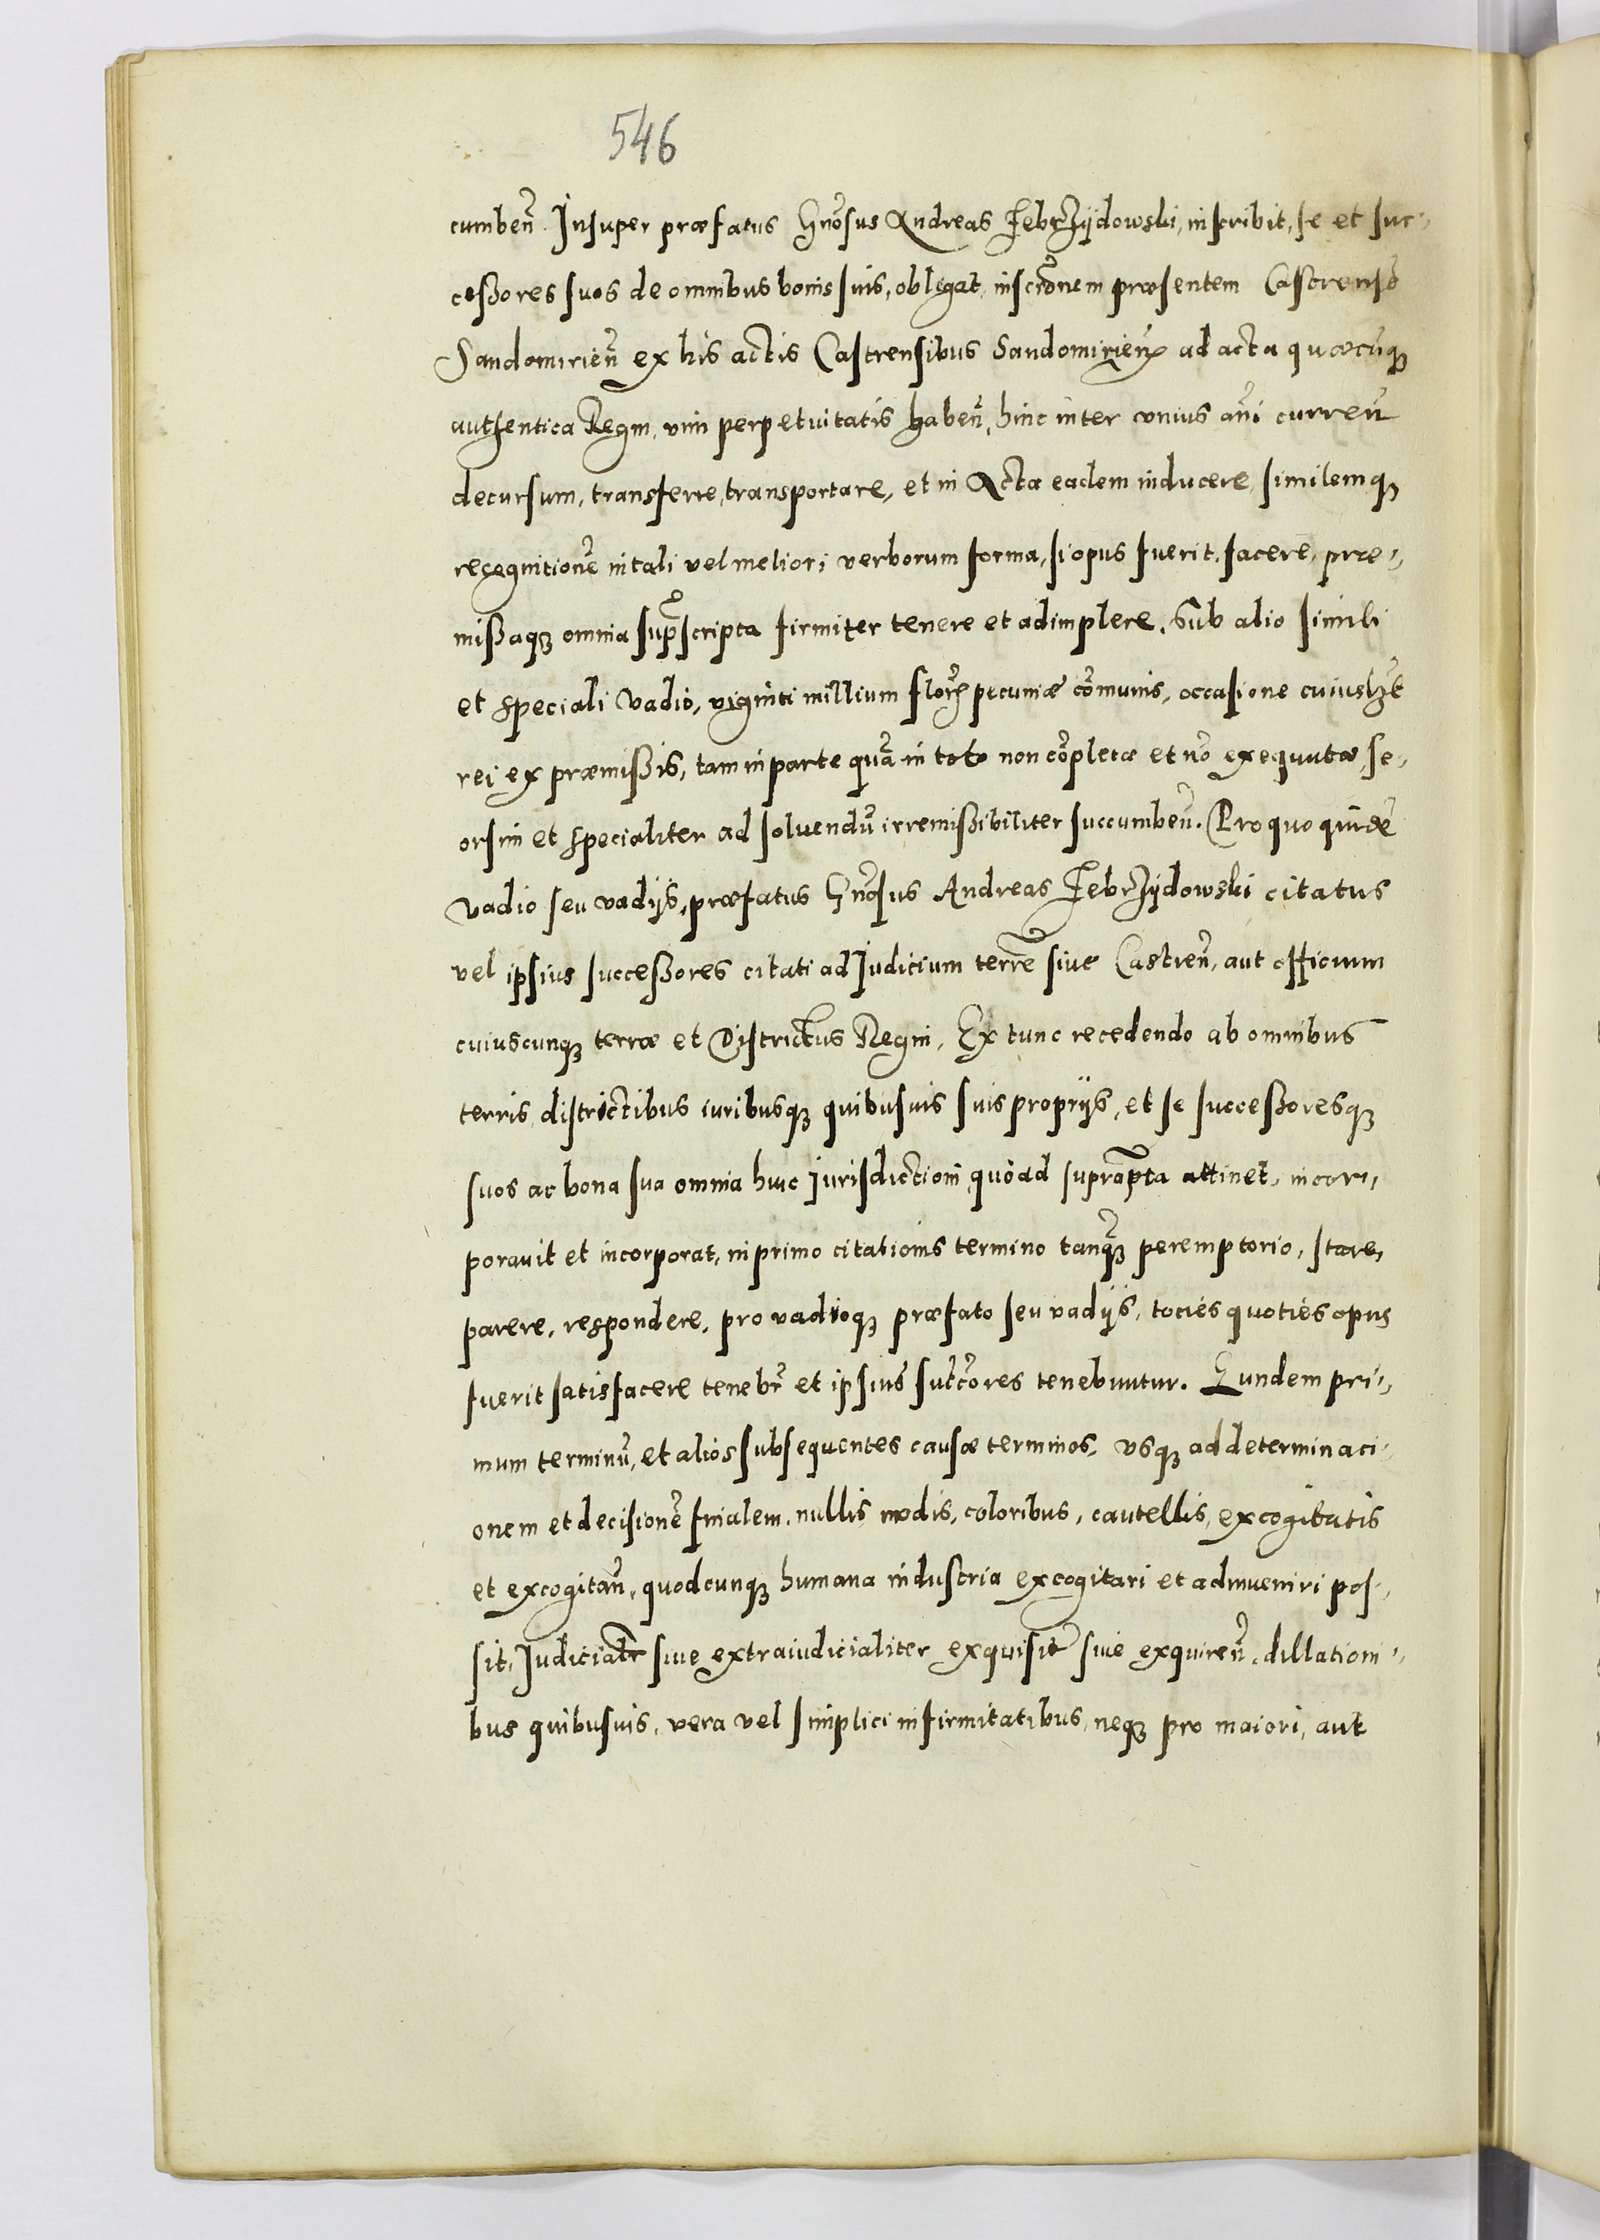 546
cumbeñ. Insuper præfatus Gñosus Andreas Jebrzÿdowski, inscribit, se et suc-
cessores suos de omnibus bonis suis, obligat, inscr̃onem præsentem Castrensẽ
Sandomirieñ ex his actis Castrensibus Sandomirieñ ad acta quæcũq₃
authentica Regni, vim perpetuitatis habeñ, hinc inter vnius añi curreñ
decursum, transferre, transportare, et in Acta eadem inducere, similemq₃
recognitionẽ in tali vel meliori verborum forma, si opus fuerit, facere, præ-
missaq₃ omnia sup̃scripta firmiter tenere et adimplere. Sub alio simili
et speciali vadio, viginti millium flor̃ pecuniæ cõmunis, occasione cuiuslꝫt
rei ex præmissis, tam in parte quã in toto non cõpletæ et nõ exequutæ, se-
orsim et specialiter ad soluendũ irremissibiliter succumbeñ. Pro quo quidẽ
vadio seu vadijs, præfatus Gñosus Andreas Jebrzÿdowski citatus
vel ipsius successores citati ad Judicium terrẽ siue Castreñ, aut officium
cuiuscunq₃ terræ et Districtus Regni, Ex tunc recedendo ab omnibus
terris districtibus iuribusq₃ quibusuis suis proprijs, et se successoresq₃
suos ac bona sua omnia huic Jurisdictioni, quoad supraꝑ̃ta attinet, incor-
porauit et incorporat, in primo citationis termino tanq̃₃ peremptorio, stare,
parere, respondere, pro vadioq₃ præfato seu vadijs, toties quoties opus
fuerit satisfacere tenebr̃ et ipsius succ̃ores tenebuntur. Eundem pri-
mum terminũ, et alios subsequentes causæ terminos, vsq₃ ad determinaci-
onem et decisionẽ finalem, nullis modis, coloribus, cautellis, excogitatis
et excogitañ, quodcunq₃ humana industria excogitari et adinueniri pos-
sit, Judicialr̃ siue extraiudicialiter exquisit̃ siue exquireñ, dillationi-
bus quibusuis, vera vel simplici infirmitatibus, neq₃ pro maiori, aut